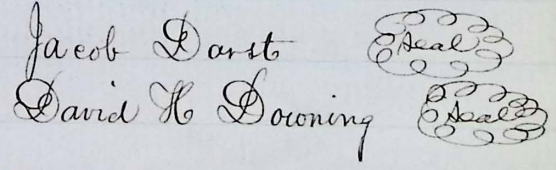 Jacob Darst Seal
David H Downing Seal